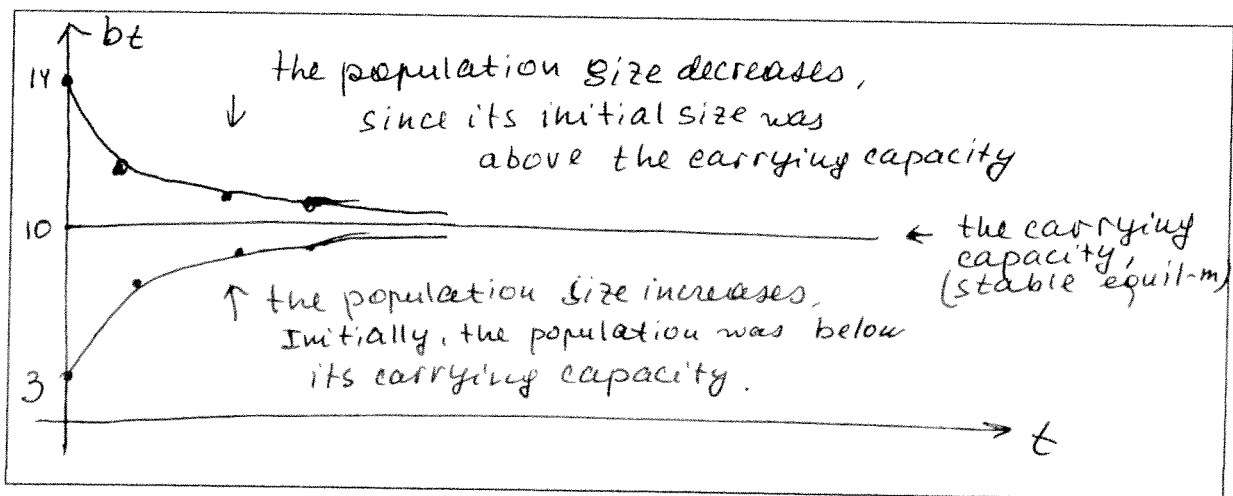 bt
14
the population size decreases,
since its initial size was
above the carrying capacity
10
← the carrying
capacity,
(stable equil-m)
↑ the population size increases.
Initially, the population was below
its carrying capacity.
3
t